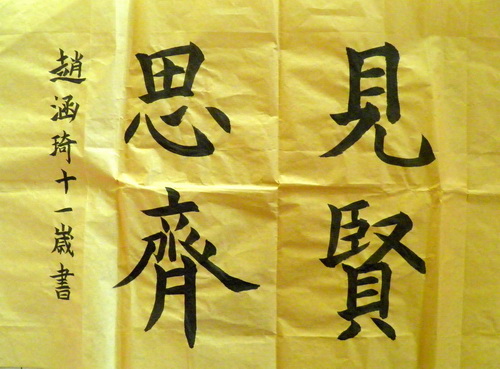 見賢
思齊
趙涵琦十一歲書